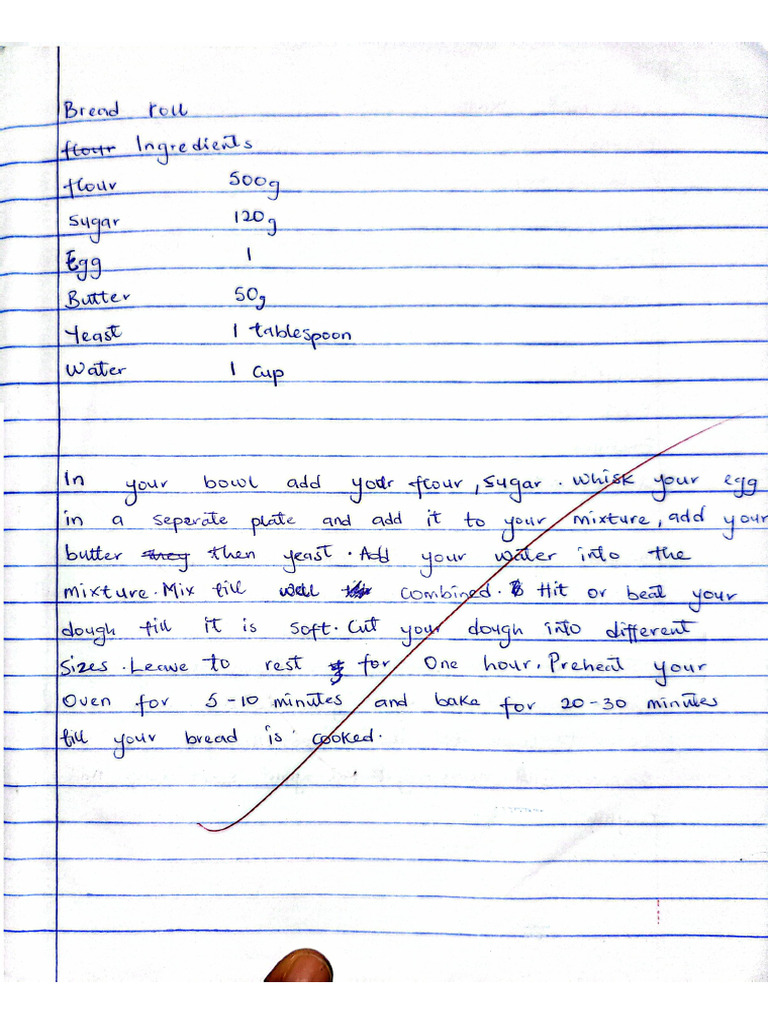 Bread roll
flour Ingredients
flour 500g
Sugar 120g
Egg 1
Butter 50g
Yeast 1 tablespoon
Water 1 cup
In your bowl add your flour, sugar. Whisk your egg
in a seperate plate and add it to your mixture, add your
butter they then yeast. Add your water into the
mixture. Mix till well combined. Hit or beat your
dough till it is soft. Cut your dough into different
sizes. Leave to rest for One hour. Preheat your
Oven for 5-10 minutes and bake for 20-30 minutes
till your bread is cooked.